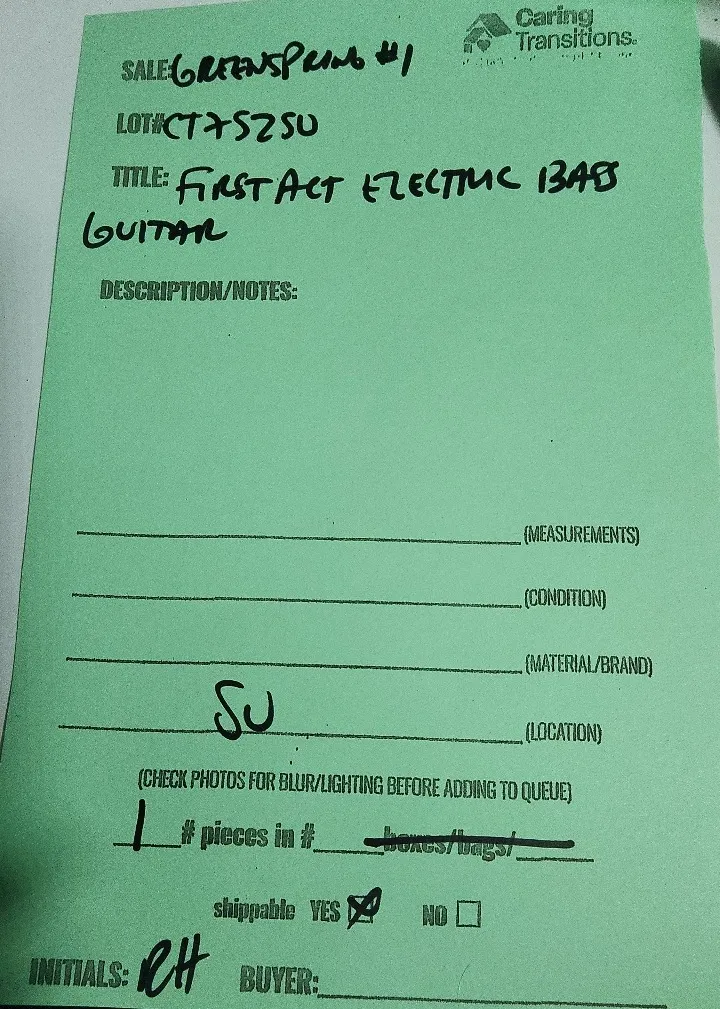 Caring
Transitions.
SALE: GREENSPRING #1
LOT# CT7525U
TITLE: FIRST ACT ELECTRIC BASS
GUITAR
DESCRIPTION/NOTES:
(MEASUREMENTS)
(CONDITION)
(MATERIAL/BRAND)
SU (LOCATION)
(CHECK PHOTOS FOR BLUR/LIGHTING BEFORE ADDING TO QUEUE)
1 # pieces in # boxes/bags/
shippable YES NO
INITIALS: RH BUYER: